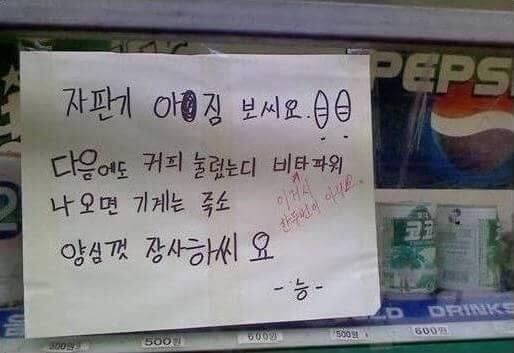 PEPSI
자판기 아짐 보씨요.
다음에도 커피 눌렀는디 비타파워
나오면 기계는 죽소
이거시
한두번이 아니요.
양심껏 장사하씨요
-능-
코코
DRINKS
300원
500원
600원
500원
600원